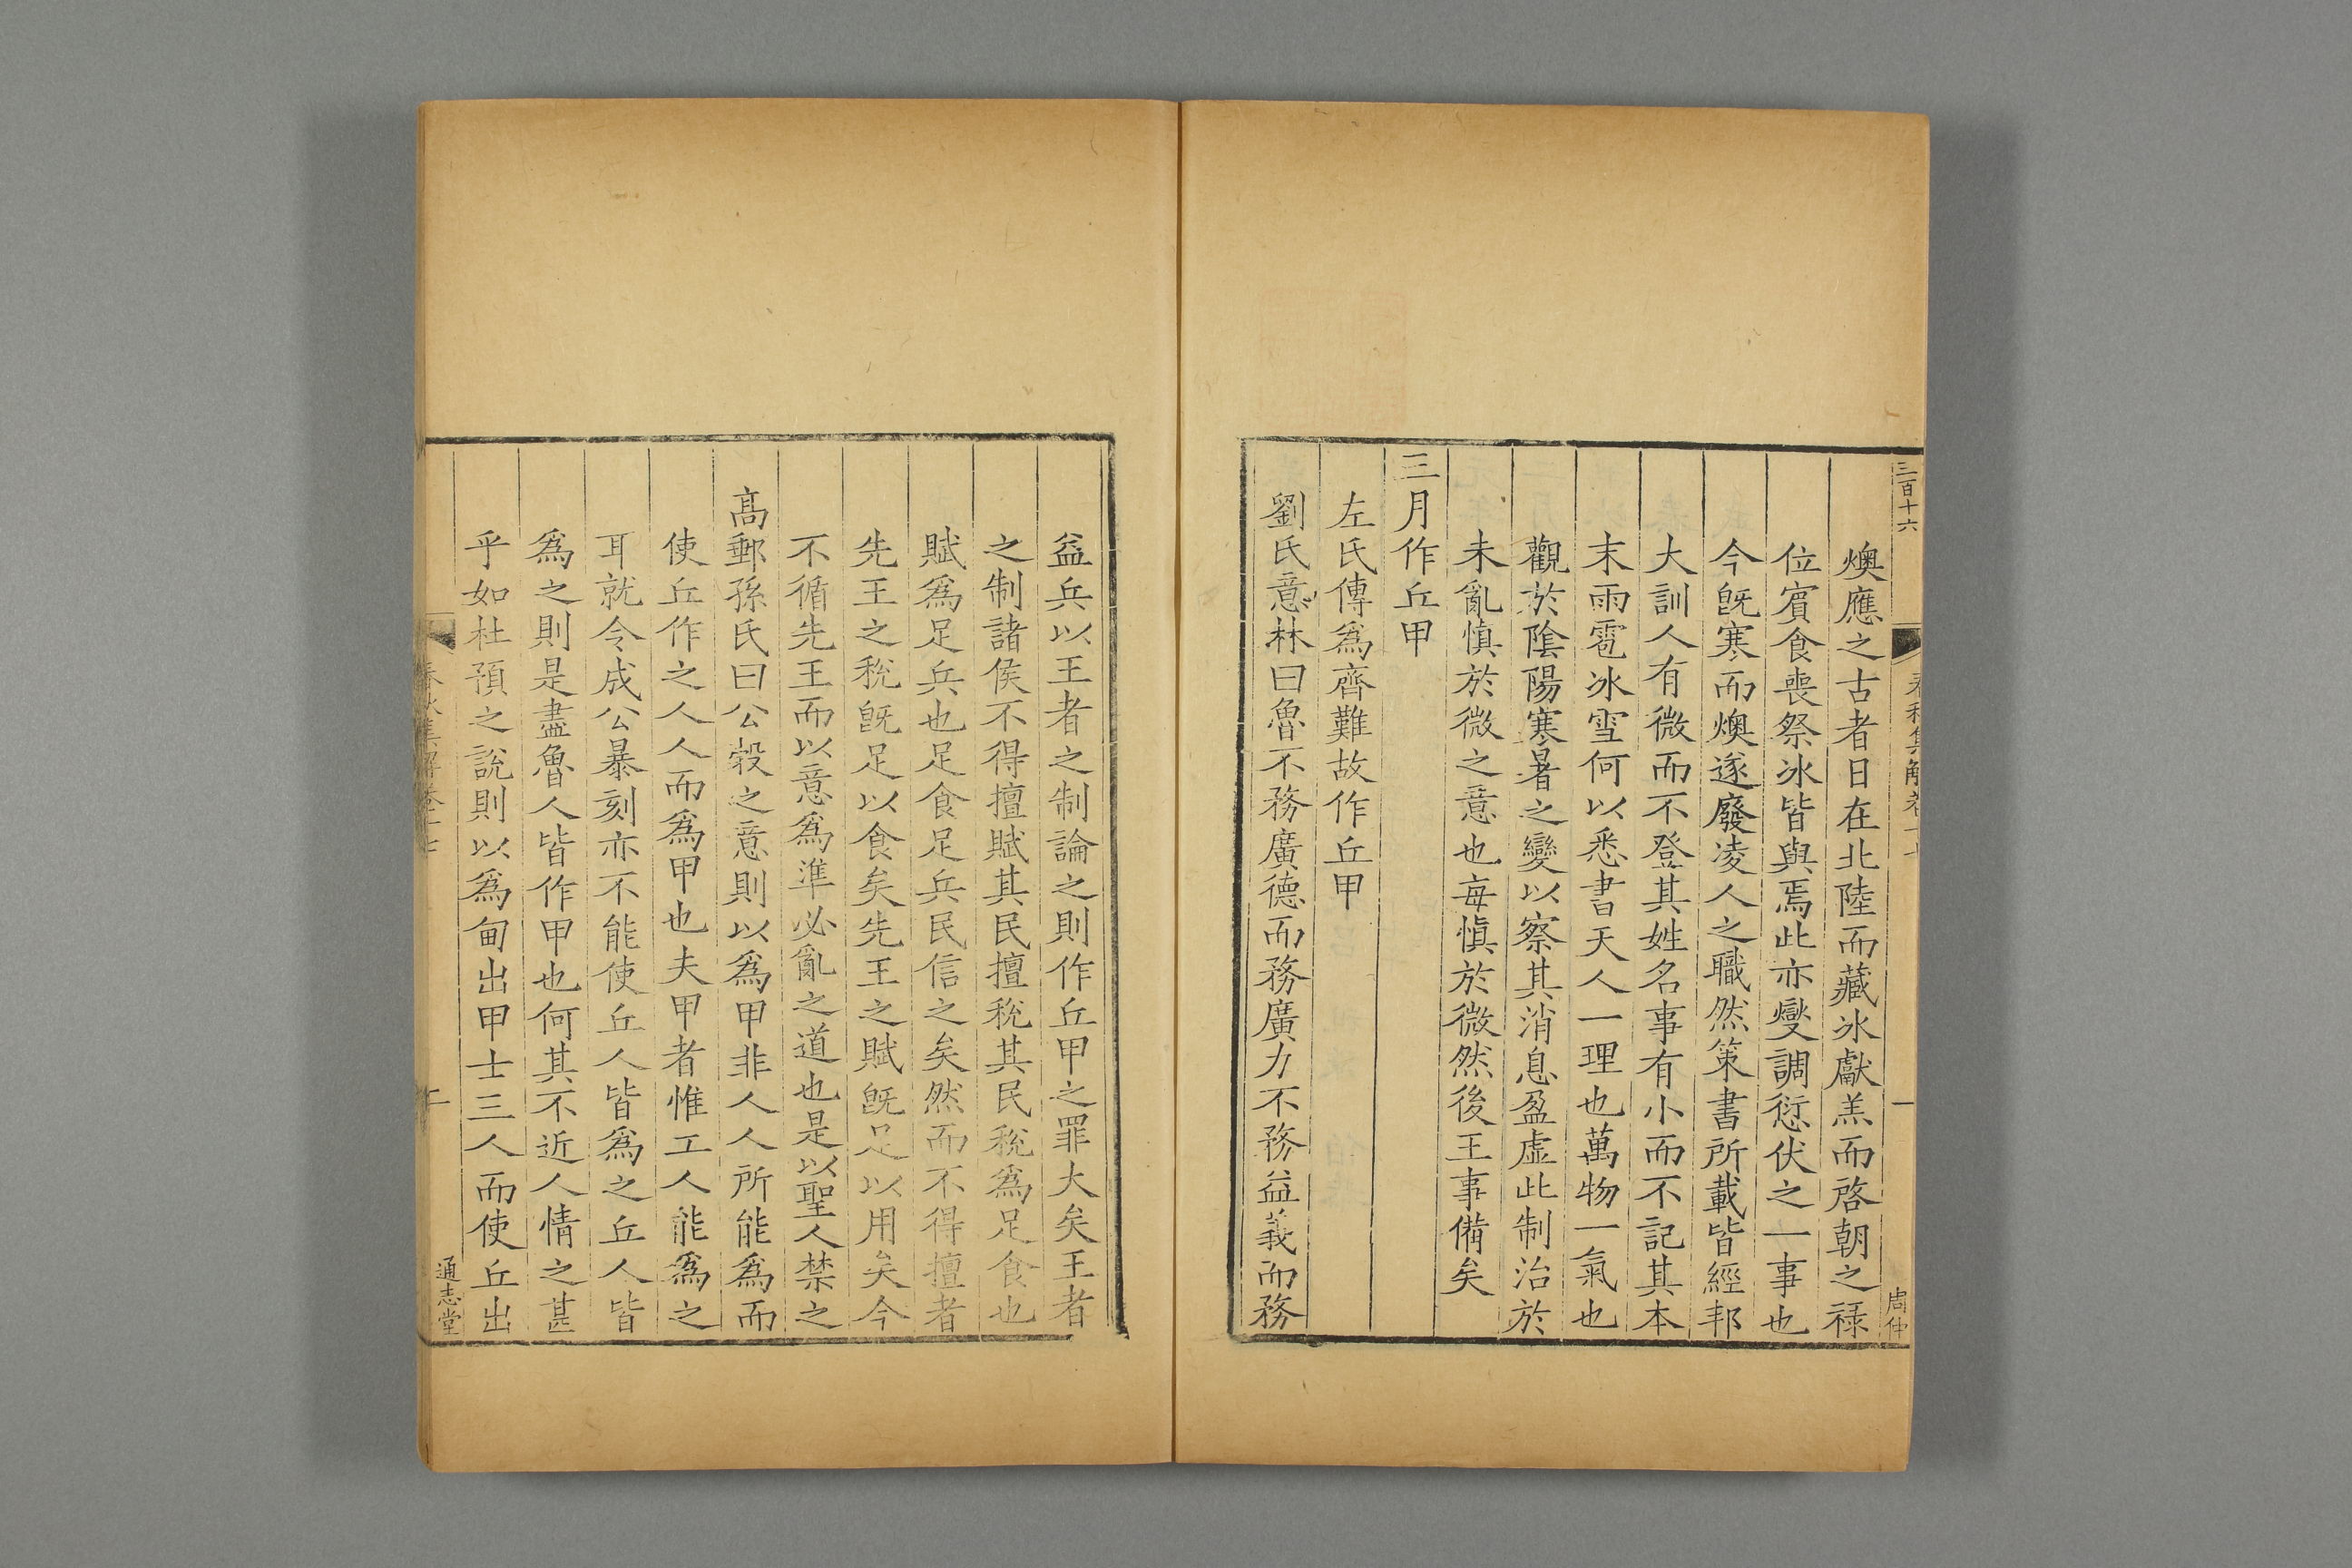 三百十六
春秋集解卷十七
一
周仲
燠應之古者日在北陸而藏冰獻羔而啓朝之禄
位賓食喪祭冰皆與焉此亦燮調愆伏之一事也
今旣寒而燠遂廢凌人之職然策書所載皆經邦
大訓人有微而不登其姓名事有小而不記其本
末雨雹冰雪何以悉書天人一理也萬物一氣也
觀於陰陽寒暑之變以察其消息盈虛此制治於
未亂慎於微之意也每慎於微然後王事備矣
三月作丘甲
左氏傳爲齊難故作丘甲
劉氏意林曰魯不務廣德而務廣力不務益義而務
益兵以王者之制論之則作丘甲之罪大矣王者
之制諸侯不得擅賦其民擅稅其民稅爲足食也
賦爲足兵也足食足兵民信之矣然而不得擅者
先王之稅旣足以食矣先王之賦旣足以用矣今
不循先王而以意爲準必亂之道也是以聖人禁之
高郵孫氏曰公穀之意則以爲甲非人人所能爲而
使丘作之人人而爲甲也夫甲者惟工人能爲之
耳就令成公暴刻亦不能使丘人皆爲之丘人皆
爲之則是盡魯人皆作甲也何其不近人情之甚
乎如杜預之說則以爲甸出甲士三人而使丘出
春秋集解卷十七
通志堂